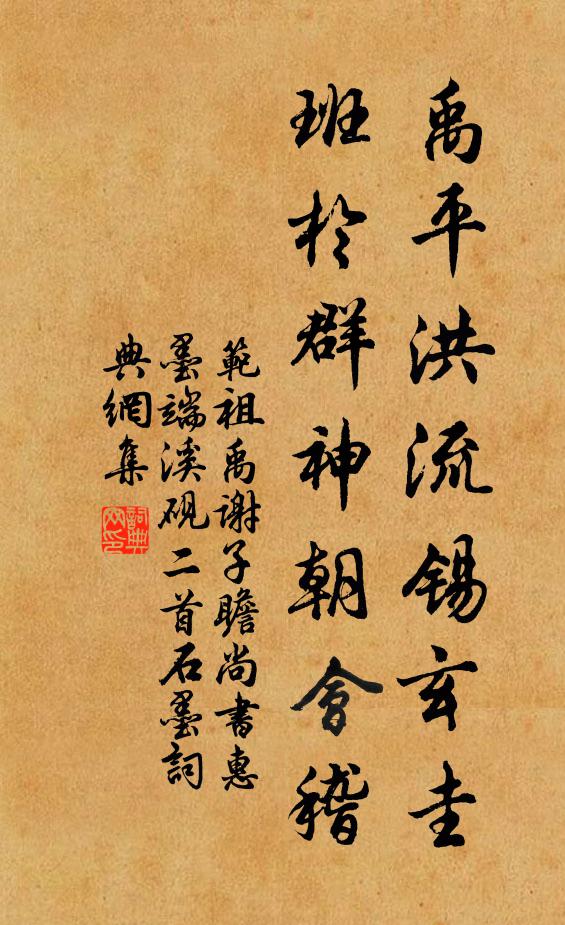 禹平洪流錫玄圭
班於群神朝會稽
範祖禹謝子瞻尚書惠
墨端溪硯二首石墨詞
典網集
詞典網印